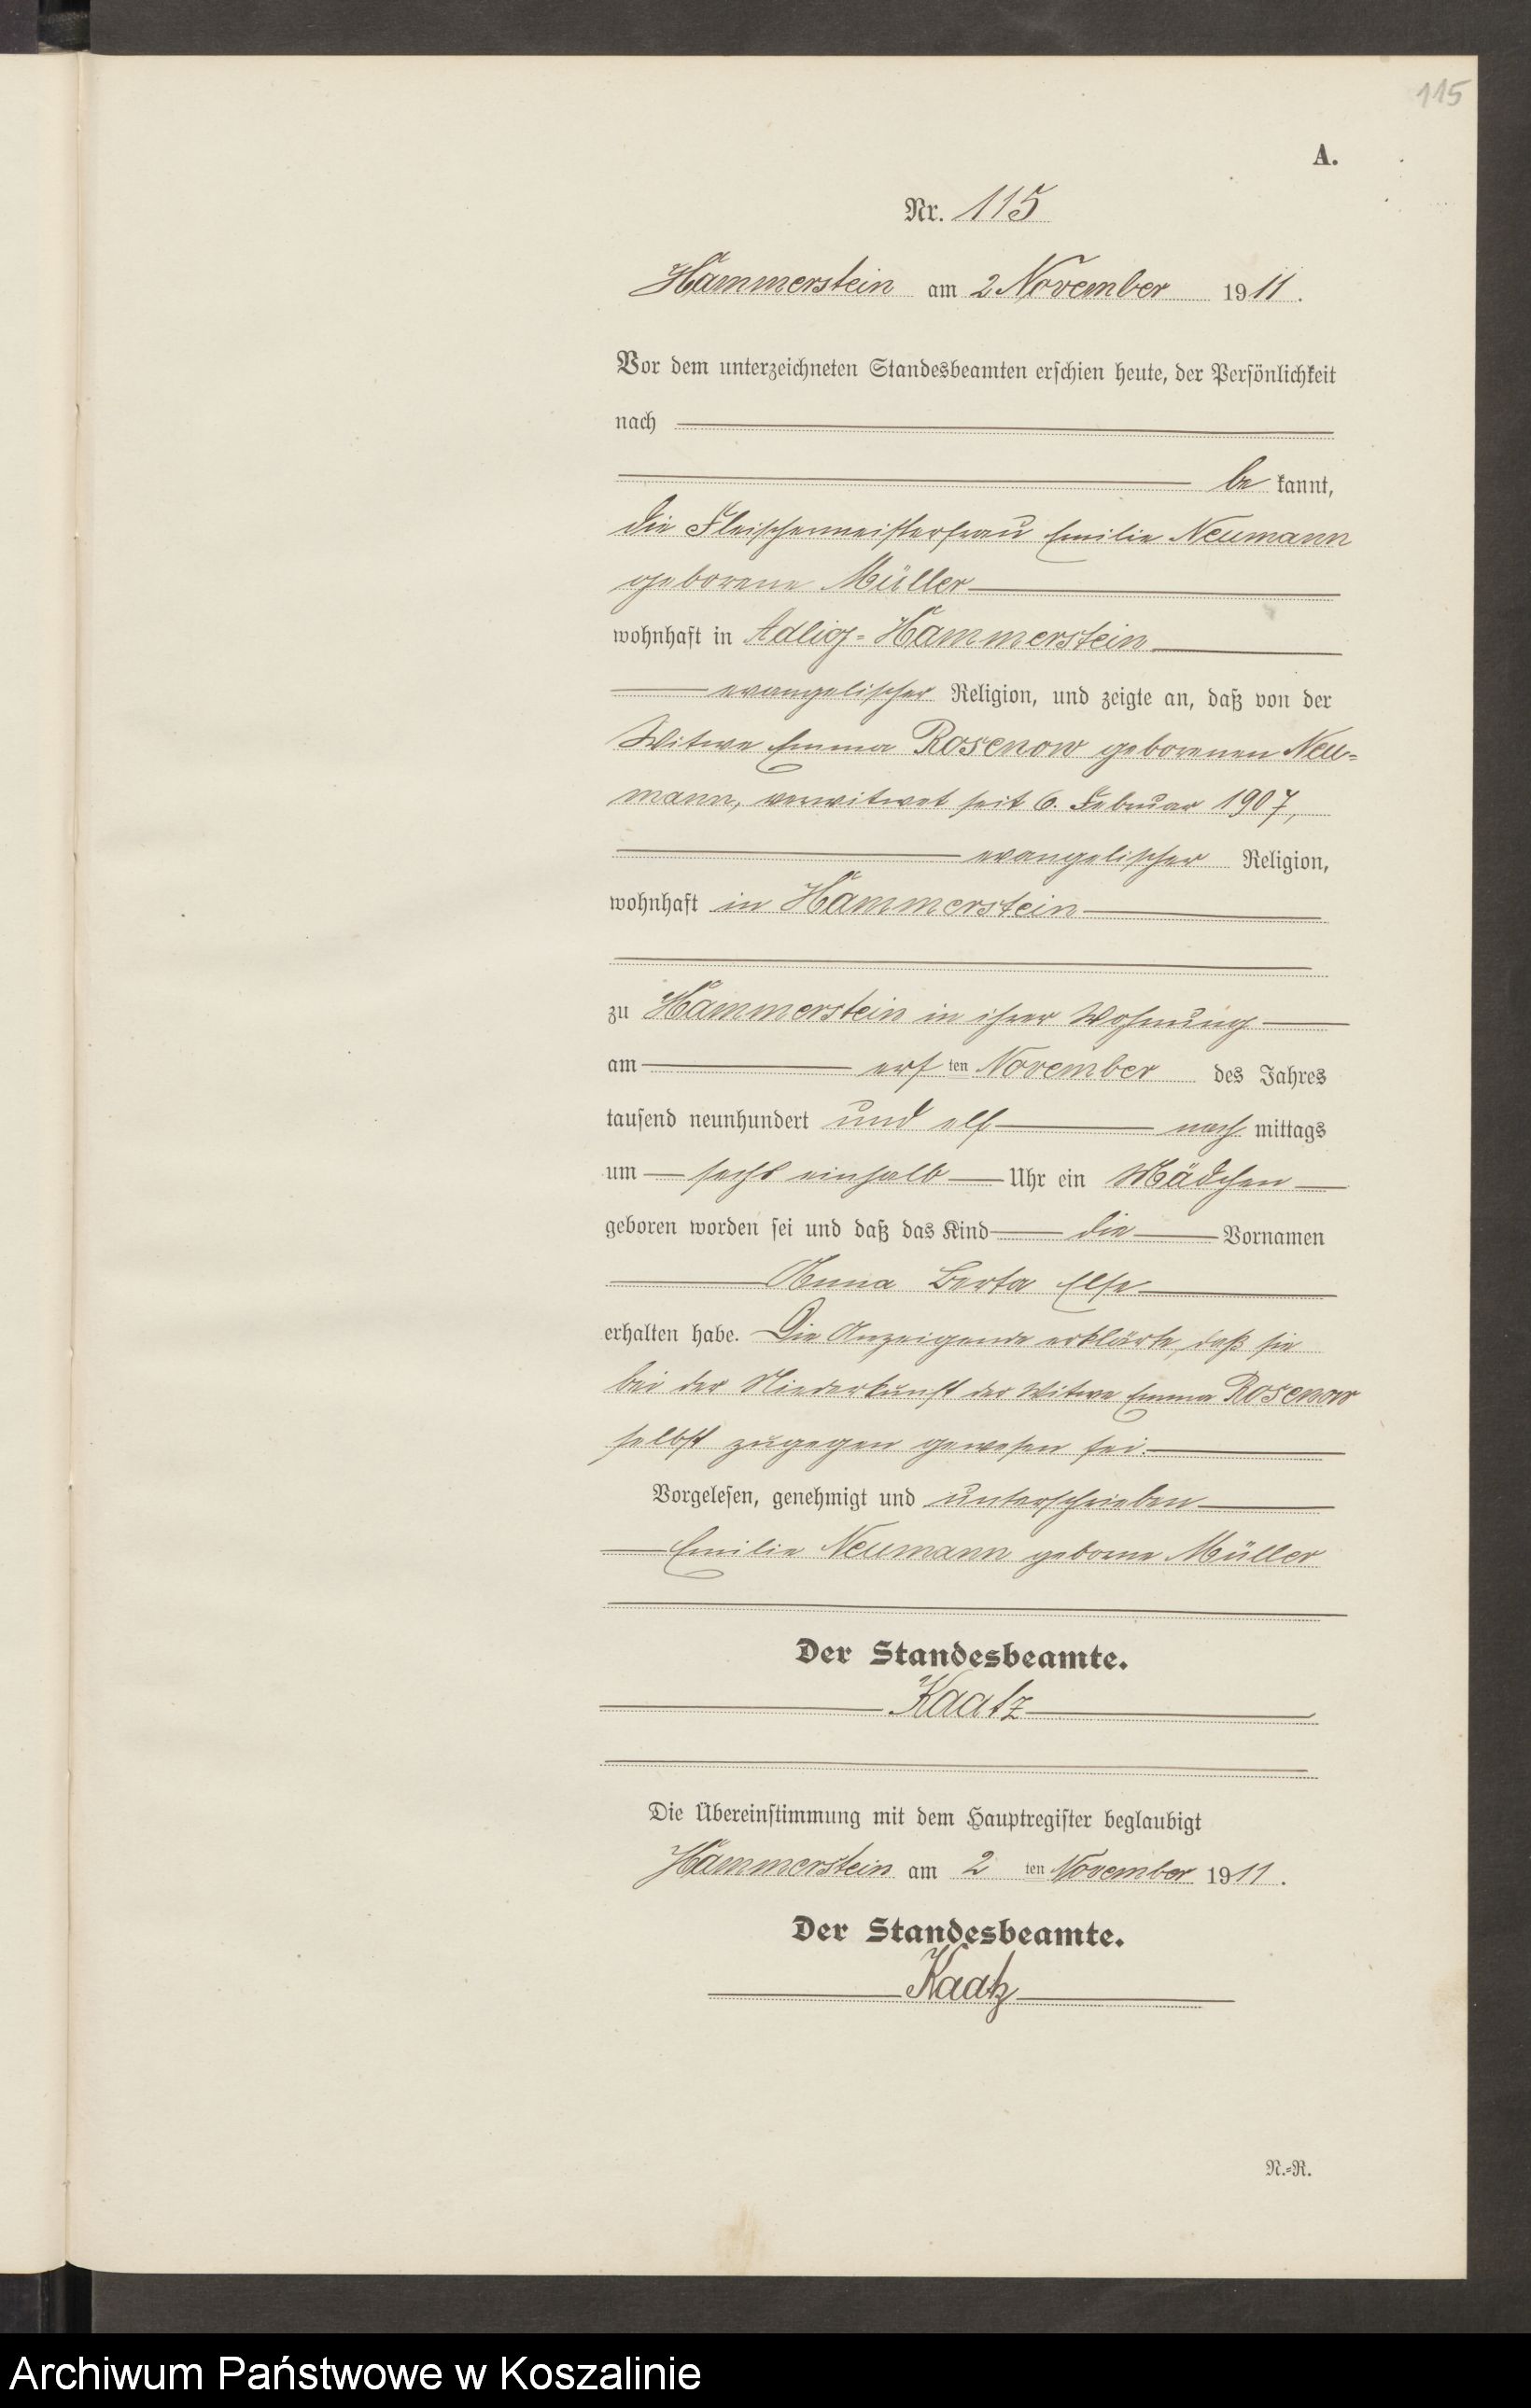 115
A.
Nr. 115
Hammerstein am 2 November 1911.
Vor dem unterzeichneten Standesbeamten erschien heute, der Persönlichkeit
nach
be kannt,
die Fleischermeisterfrau Emilie Neumann
geborene Müller
wohnhaft in Adlig-Hammerstein
evangelischer Religion, und zeigte an, daß von der
Witwe Emma Rosenow geborenen Neu-
mann, verwitwet seit 6. Februar 1907,
evangelischer Religion,
wohnhaft in Hammerstein
zu Hammerstein in ihrer Wohnung
am ersten November des Jahres
tausend neunhundert und elf nach mittags
um sechs einhalb Uhr ein Mädchen
geboren worden sei und daß das Kind die Vornamen
Anna Berta Else
erhalten habe. Die Anzeigende erklärte, daß sie
bei der Niederkunft der Witwe Emma Rosenow
selbst zugegen gewesen sei.
Vorgelesen, genehmigt und unterschrieben
Emilie Neumann geborne Müller
Der Standesbeamte.
Kaatz
Die Übereinstimmung mit dem Hauptregister beglaubigt
Hammerstein am 2 ten November 1911.
Der Standesbeamte.
Kaatz
N.-R.
Archiwum Państwowe w Koszalinie